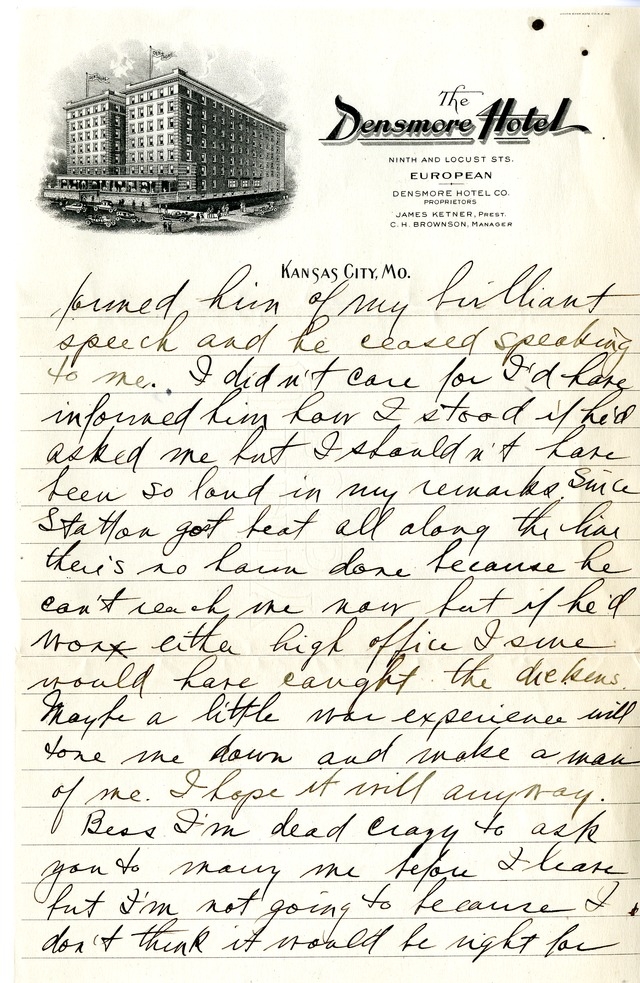 The
Densmore Hotel
NINTH AND LOCUST STS.
EUROPEAN
DENSMORE HOTEL CO.
PROPRIETORS
JAMES KETNER, PREST.
C. H. BROWNSON, MANAGER
KANSAS CITY, MO.
formed him of my brilliant
speech and he ceased speaking
to me. I didn't care for I'd have
informed him how I stood if he'd
asked me but I shouldn't have
been so loud in my remarks. Since
Statton got beat all along the line
there's no harm done because he
can't reach me now but if he'd
won either high office I sure
would have caught the dickens.
Maybe a little war experience will
tone me down and make a man
of me. I hope it will anyway.
Bess I'm dead crazy to ask
you to marry me before I leave
but I'm not going to because I
don't think it would be right for